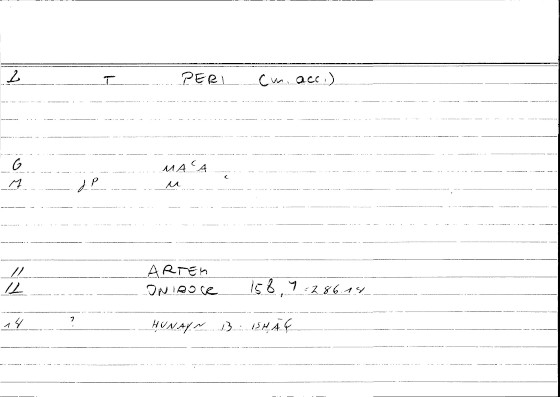 1 T PERI (w. acc.)
6 MAʿA
7 JP M ʿ
11 ARTEM
12 ONIROCR 158,7 = 286 14
14 ? HUNAYN B. ISHĀQ